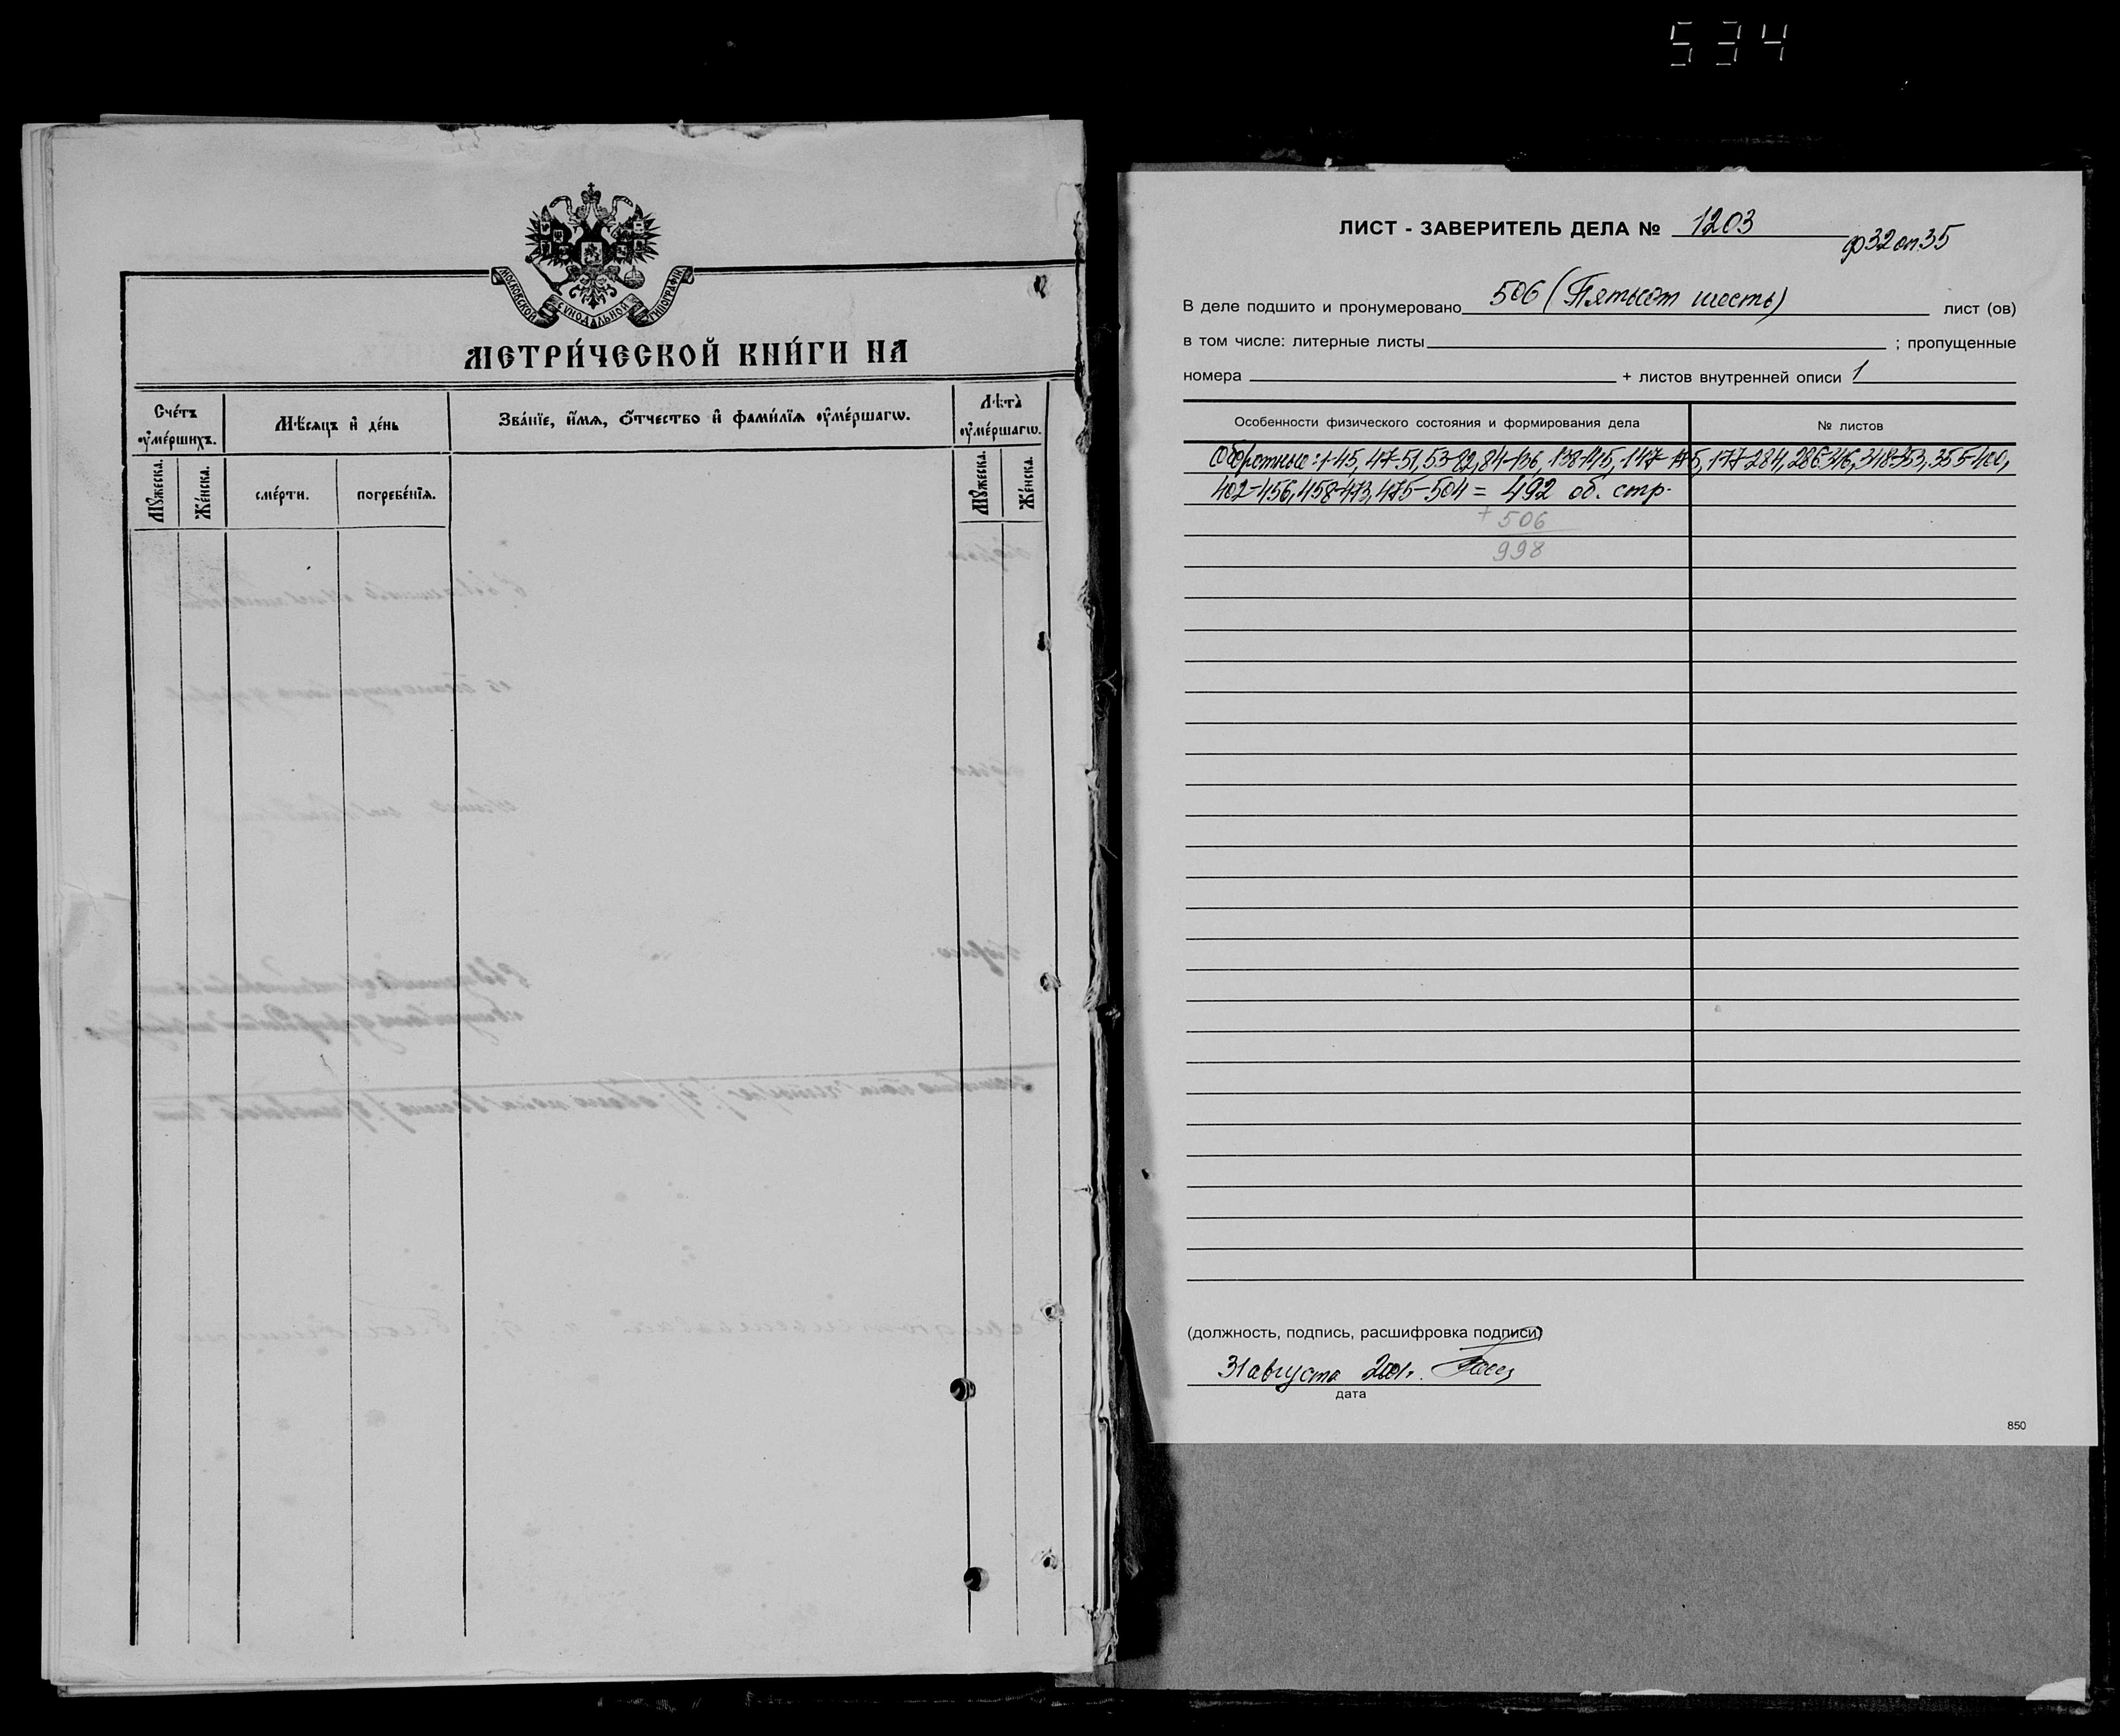 534
МОСКОВСКОЙ СѴНОДАЛЬНОЙ ТИПОГРАФІИ
МЕТРИ́ЧЕСКОЙ КНИ́ГИ НА
Сче́тъ ᲂу҆ме́ршихъ.
Мѣ́сяцъ и҆ де́нь
Зва́нїе, и҆́мѧ, ѻ҆́тчество и҆ фами́лїѧ ᲂу҆ме́ршагѡ.
Лѣ́та ᲂу҆ме́ршагѡ.
Мꙋ́жеска.
Же́нска.
сме́рти.
погребе́нїѧ.
Мꙋ́жеска.
Же́нска.
ЛИСТ - ЗАВЕРИТЕЛЬ ДЕЛА № 1203
ф32 оп35
В деле подшито и пронумеровано 506 (Пятьсот шесть) лист (ов)
в том числе: литерные листы ; пропущенные
номера + листов внутренней описи 1
Особенности физического состояния и формирования дела
№ листов
Оборотные: 1-45, 47-51, 53-82, 84-136, 138-145, 147-175, 177-284, 286-316, 318-353, 355-400,
402-456, 458-473, 475-504 = 492 об. стр.
+ 506
998
(должность, подпись, расшифровка подписи)
31 августа 2001г.
дата
850